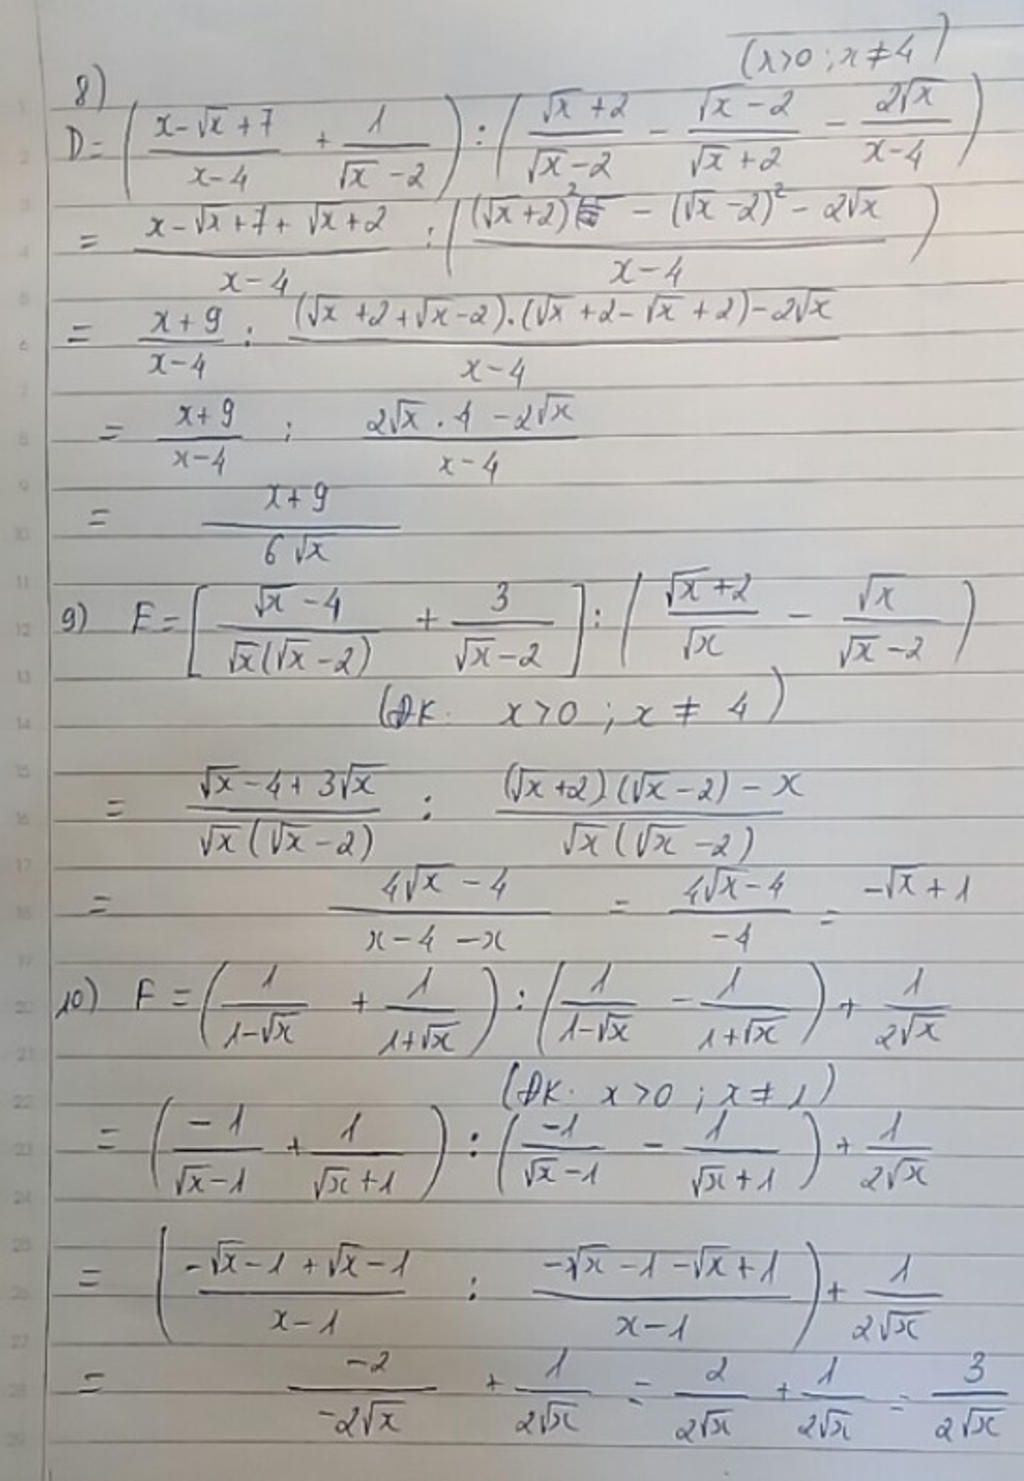 (x>0 ; x ≠ 4)
8)
D = ( (x-√x+7)/(x-4) + 1/(√x-2) ) : ( (√x+2)/(√x-2) - (√x-2)/(√x+2) - 2√x/(x-4) )
= (x-√x+7+√x+2)/(x-4) : ( ((√x+2)² - (√x-2)² - 2√x)/(x-4) )
= (x+9)/(x-4) : ((√x+2+√x-2).(√x+2-√x+2)-2√x)/(x-4)
= (x+9)/(x-4) : (2√x . 4 - 2√x)/(x-4)
= (x+9)/(6√x)
9) E = [ (√x-4)/(√x(√x-2)) + 3/(√x-2) ] : ( (√x+2)/√x - √x/(√x-2) )
(ĐK: x>0 ; x ≠ 4)
= (√x-4+3√x)/(√x(√x-2)) : ((√x+2)(√x-2)-x)/(√x(√x-2))
= (4√x-4)/(x-4-x) = (4√x-4)/(-4) = -√x+1
10) F = ( 1/(1-√x) + 1/(1+√x) ) : ( 1/(1-√x) - 1/(1+√x) ) + 1/(2√x)
(ĐK: x>0 ; x ≠ 1)
= ( -1/(√x-1) + 1/(√x+1) ) : ( -1/(√x-1) - 1/(√x+1) ) + 1/(2√x)
= ( (-√x-1+√x-1)/(x-1) : (-√x-1-√x+1)/(x-1) ) + 1/(2√x)
= -2/(-2√x) + 1/(2√x) = 2/(2√x) + 1/(2√x) = 3/(2√x)